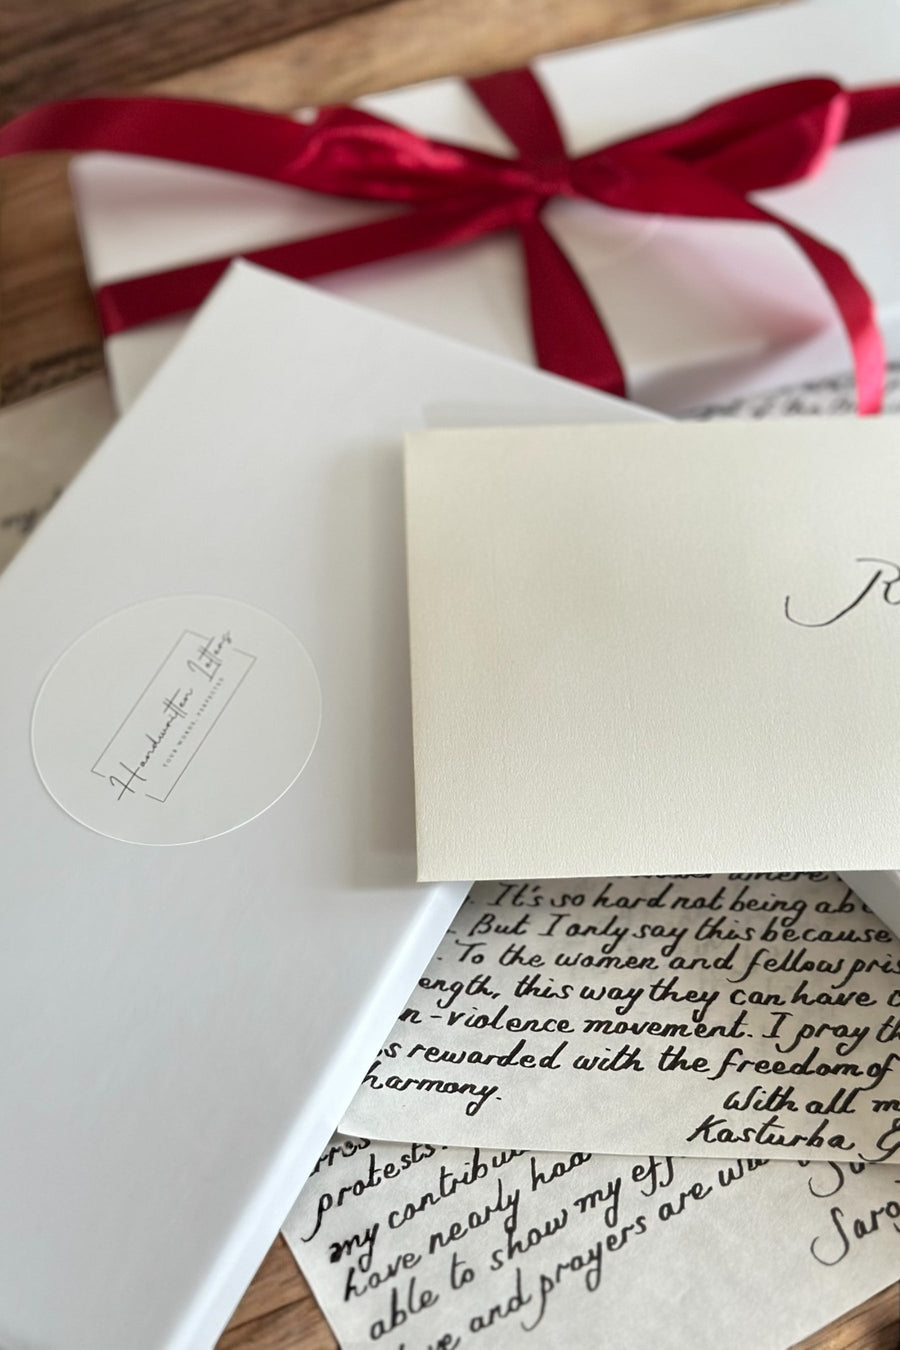 Handwritten Letters
YOUR WORDS, PERFECTED
R
where
It's so hard not being ab
But I only say this because
To the women and fellow pris
ength, this way they can have c
n-violence movement. I pray th
s rewarded with the freedom of
harmony.
With all m
Kasturba G
protests.
my contribu
have nearly had
able to show my eff
ve and prayers are wi
Saro